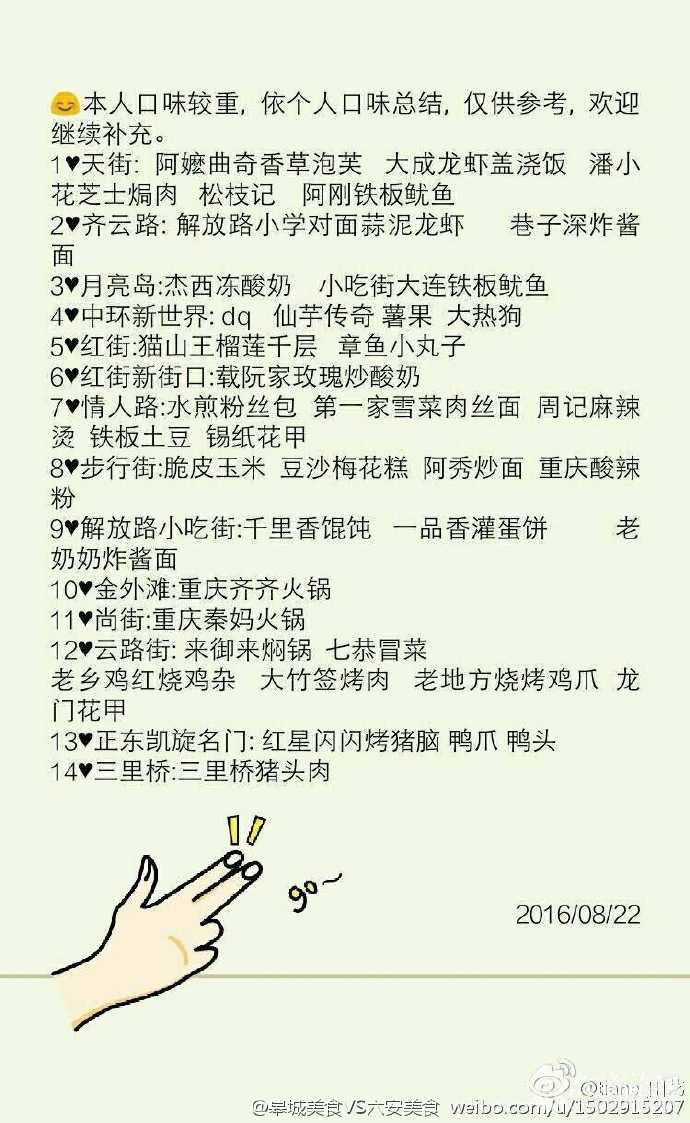 😊本人口味较重，依个人口味总结，仅供参考，欢迎
继续补充。
1♥天街: 阿嬷曲奇香草泡芙 大成龙虾盖浇饭 潘小
花芝士焗肉 松枝记 阿刚铁板鱿鱼
2♥齐云路: 解放路小学对面蒜泥龙虾 巷子深炸酱
面
3♥月亮岛:杰西冻酸奶 小吃街大连铁板鱿鱼
4♥中环新世界: dq 仙芋传奇 薯果 大热狗
5♥红街:猫山王榴莲千层 章鱼小丸子
6♥红街新街口:载阮家玫瑰炒酸奶
7♥情人路:水煎粉丝包 第一家雪菜肉丝面 周记麻辣
烫 铁板土豆 锡纸花甲
8♥步行街:脆皮玉米 豆沙梅花糕 阿秀炒面 重庆酸辣
粉
9♥解放路小吃街:千里香馄饨 一品香灌蛋饼 老
奶奶炸酱面
10♥金外滩:重庆齐齐火锅
11♥尚街:重庆秦妈火锅
12♥云路街: 来御来焖锅 七恭冒菜
老乡鸡红烧鸡杂 大竹签烤肉 老地方烧烤鸡爪 龙
门花甲
13♥正东凯旋名门: 红星闪闪烤猪脑 鸭爪 鸭头
14♥三里桥:三里桥猪头肉
go~
2016/08/22
@皋城美食VS六安美食 weibo.com/u/1502915207